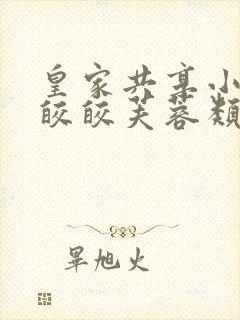 皇家共享小
皎皎芙蓉颓
畢旭火